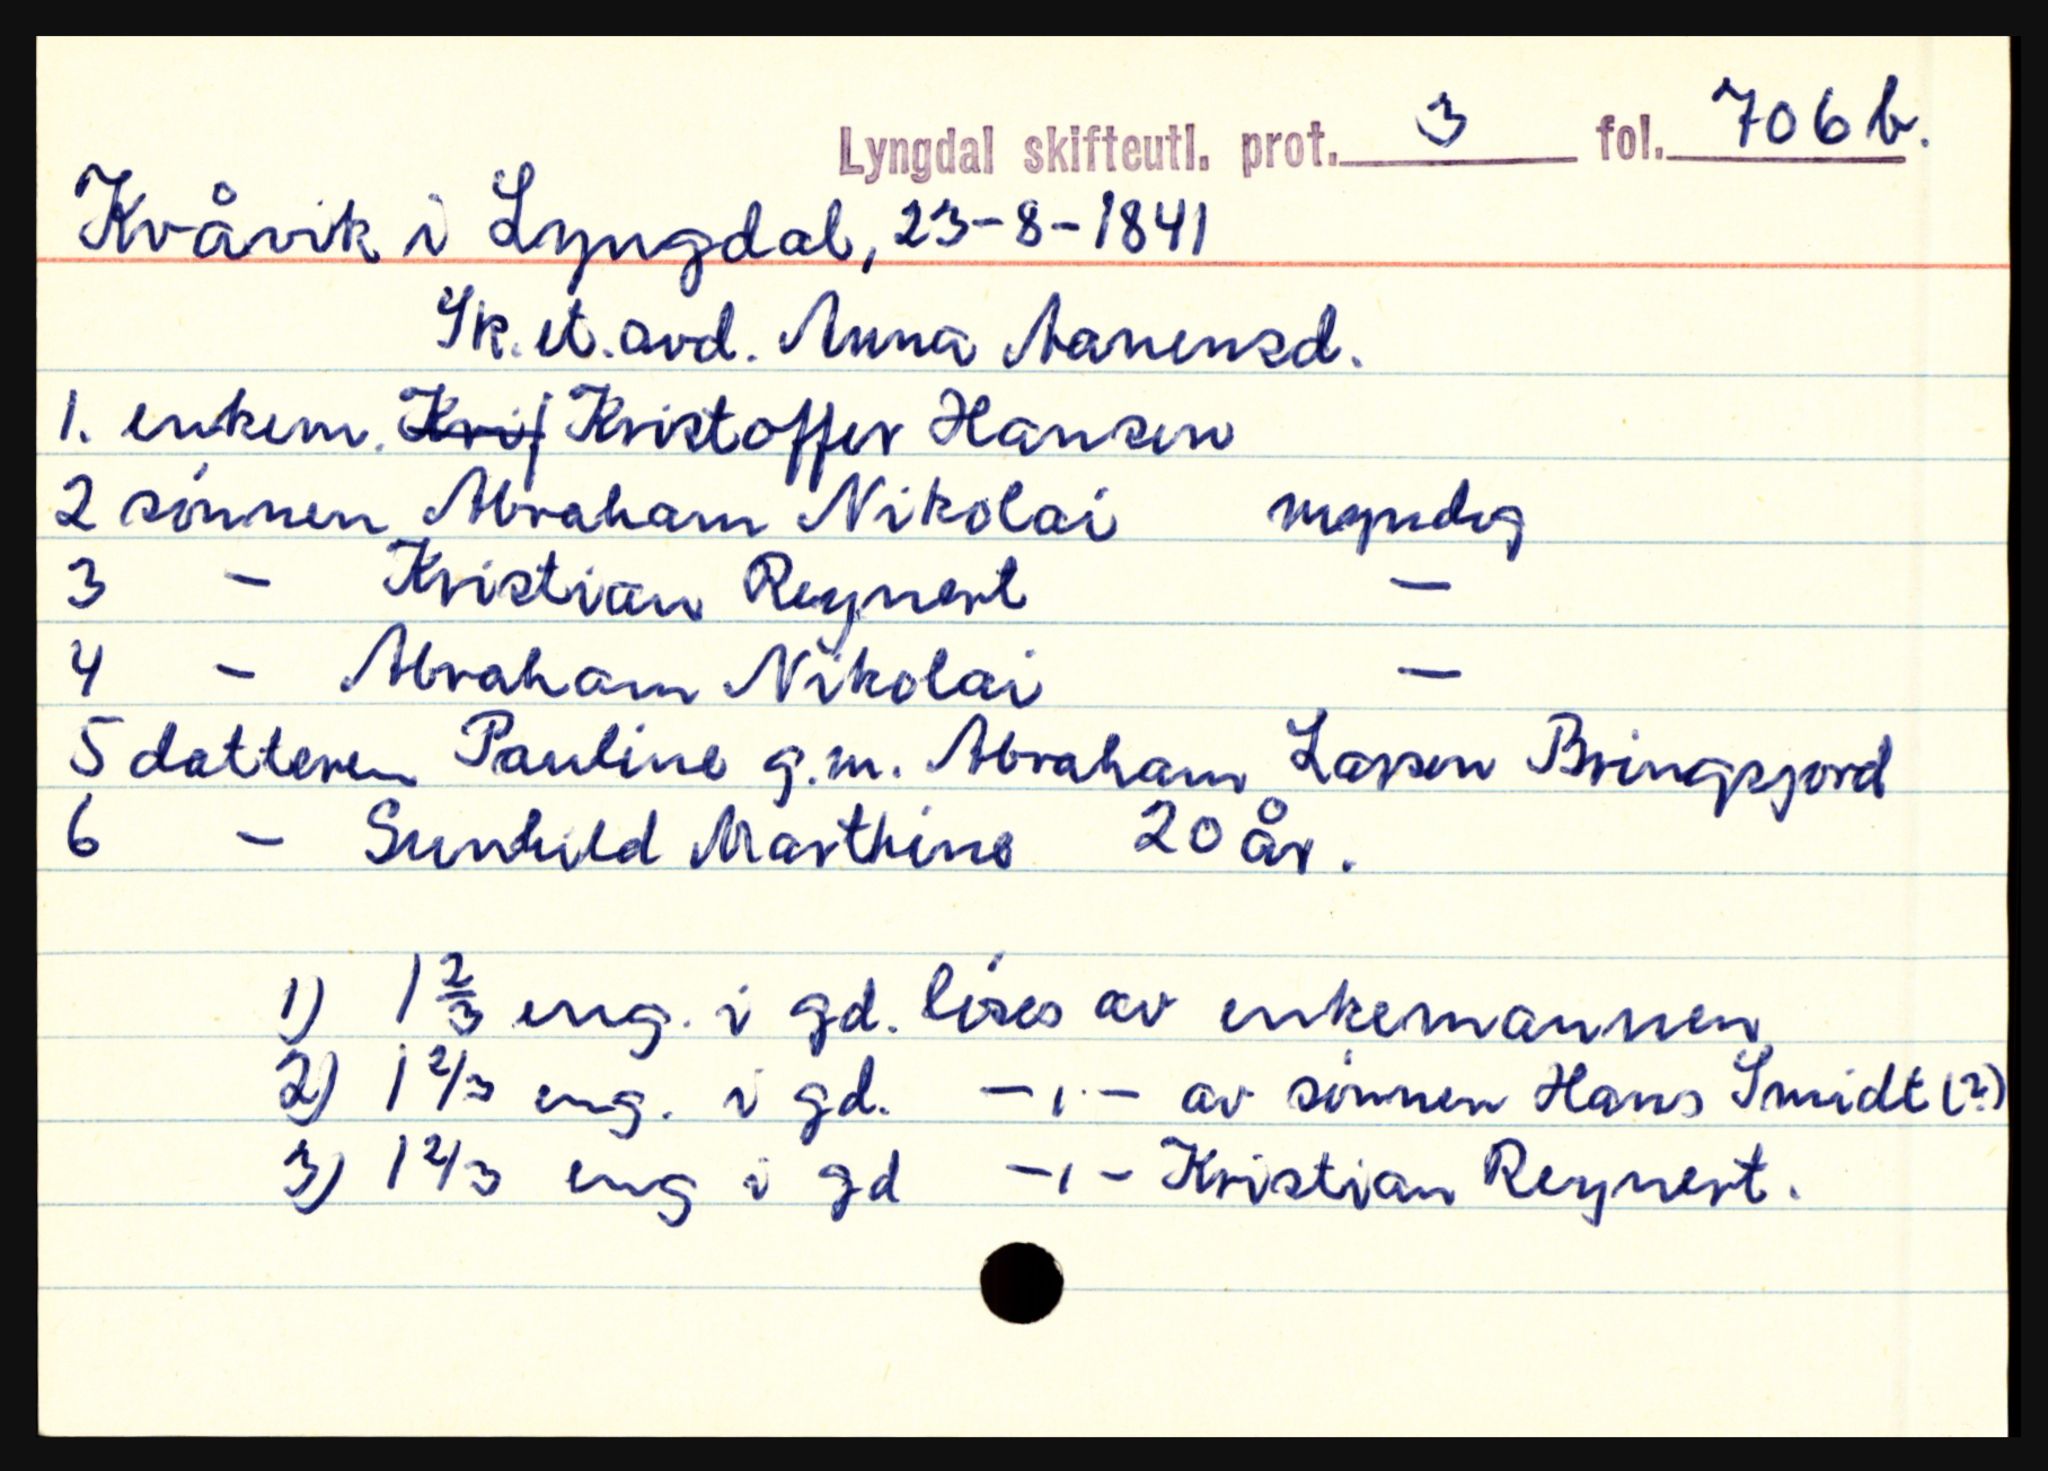 Lyngdal skifteutl. prot. 3 fol. 706 b.
Kvåvik i Lyngdal, 23-8-1841
Sk. et. avd. Anna Aanensd.
1. enkem. Kristoffer Hansen
2 sønnen Abraham Nikolai myndig
3 - Kristian Reynert -
4 - Abraham Nikolai -
5 datteren Pauline g.m. Abraham Larsen Bringsjord
6 - Gunhild Marthine 20 år.
1) 1 2/3 eng. i gd. løses av enkemannen
2) 1 2/3 eng. i gd. -,,- av sønnen Hans Smidt (?)
3) 1 2/3 eng i gd -,- Kristian Reynert.